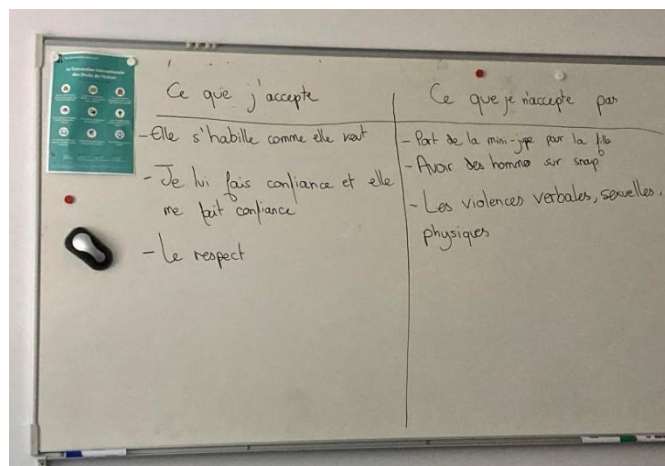 La Convention Internationale
des Droits de l'Enfant
Ce que j'accepte
- Elle s'habille comme elle veut
- Je lui fais confiance et elle
me fait confiance
- Le respect
Ce que je n'accepte pas
- Port de la mini-jupe pour la fille
- Avoir des hommes sur snap
- Les violences verbales, sexuelles,
physiques